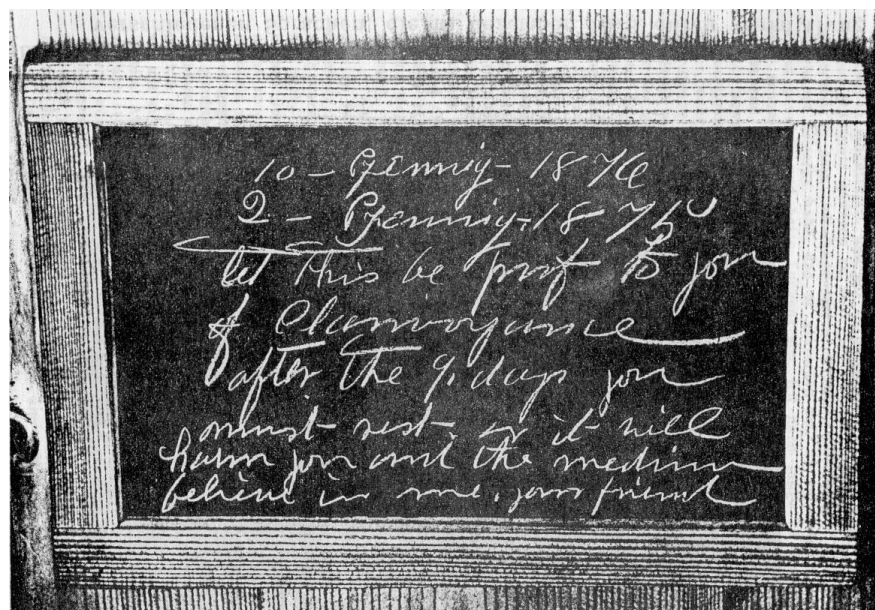 10 - Pfennig - 1876
2 - Pfennig - 1875
let this be proof to you
of Clairvoyance
after the 9. days you
must rest. or it will
harm you and the medium
believe in me, your friend